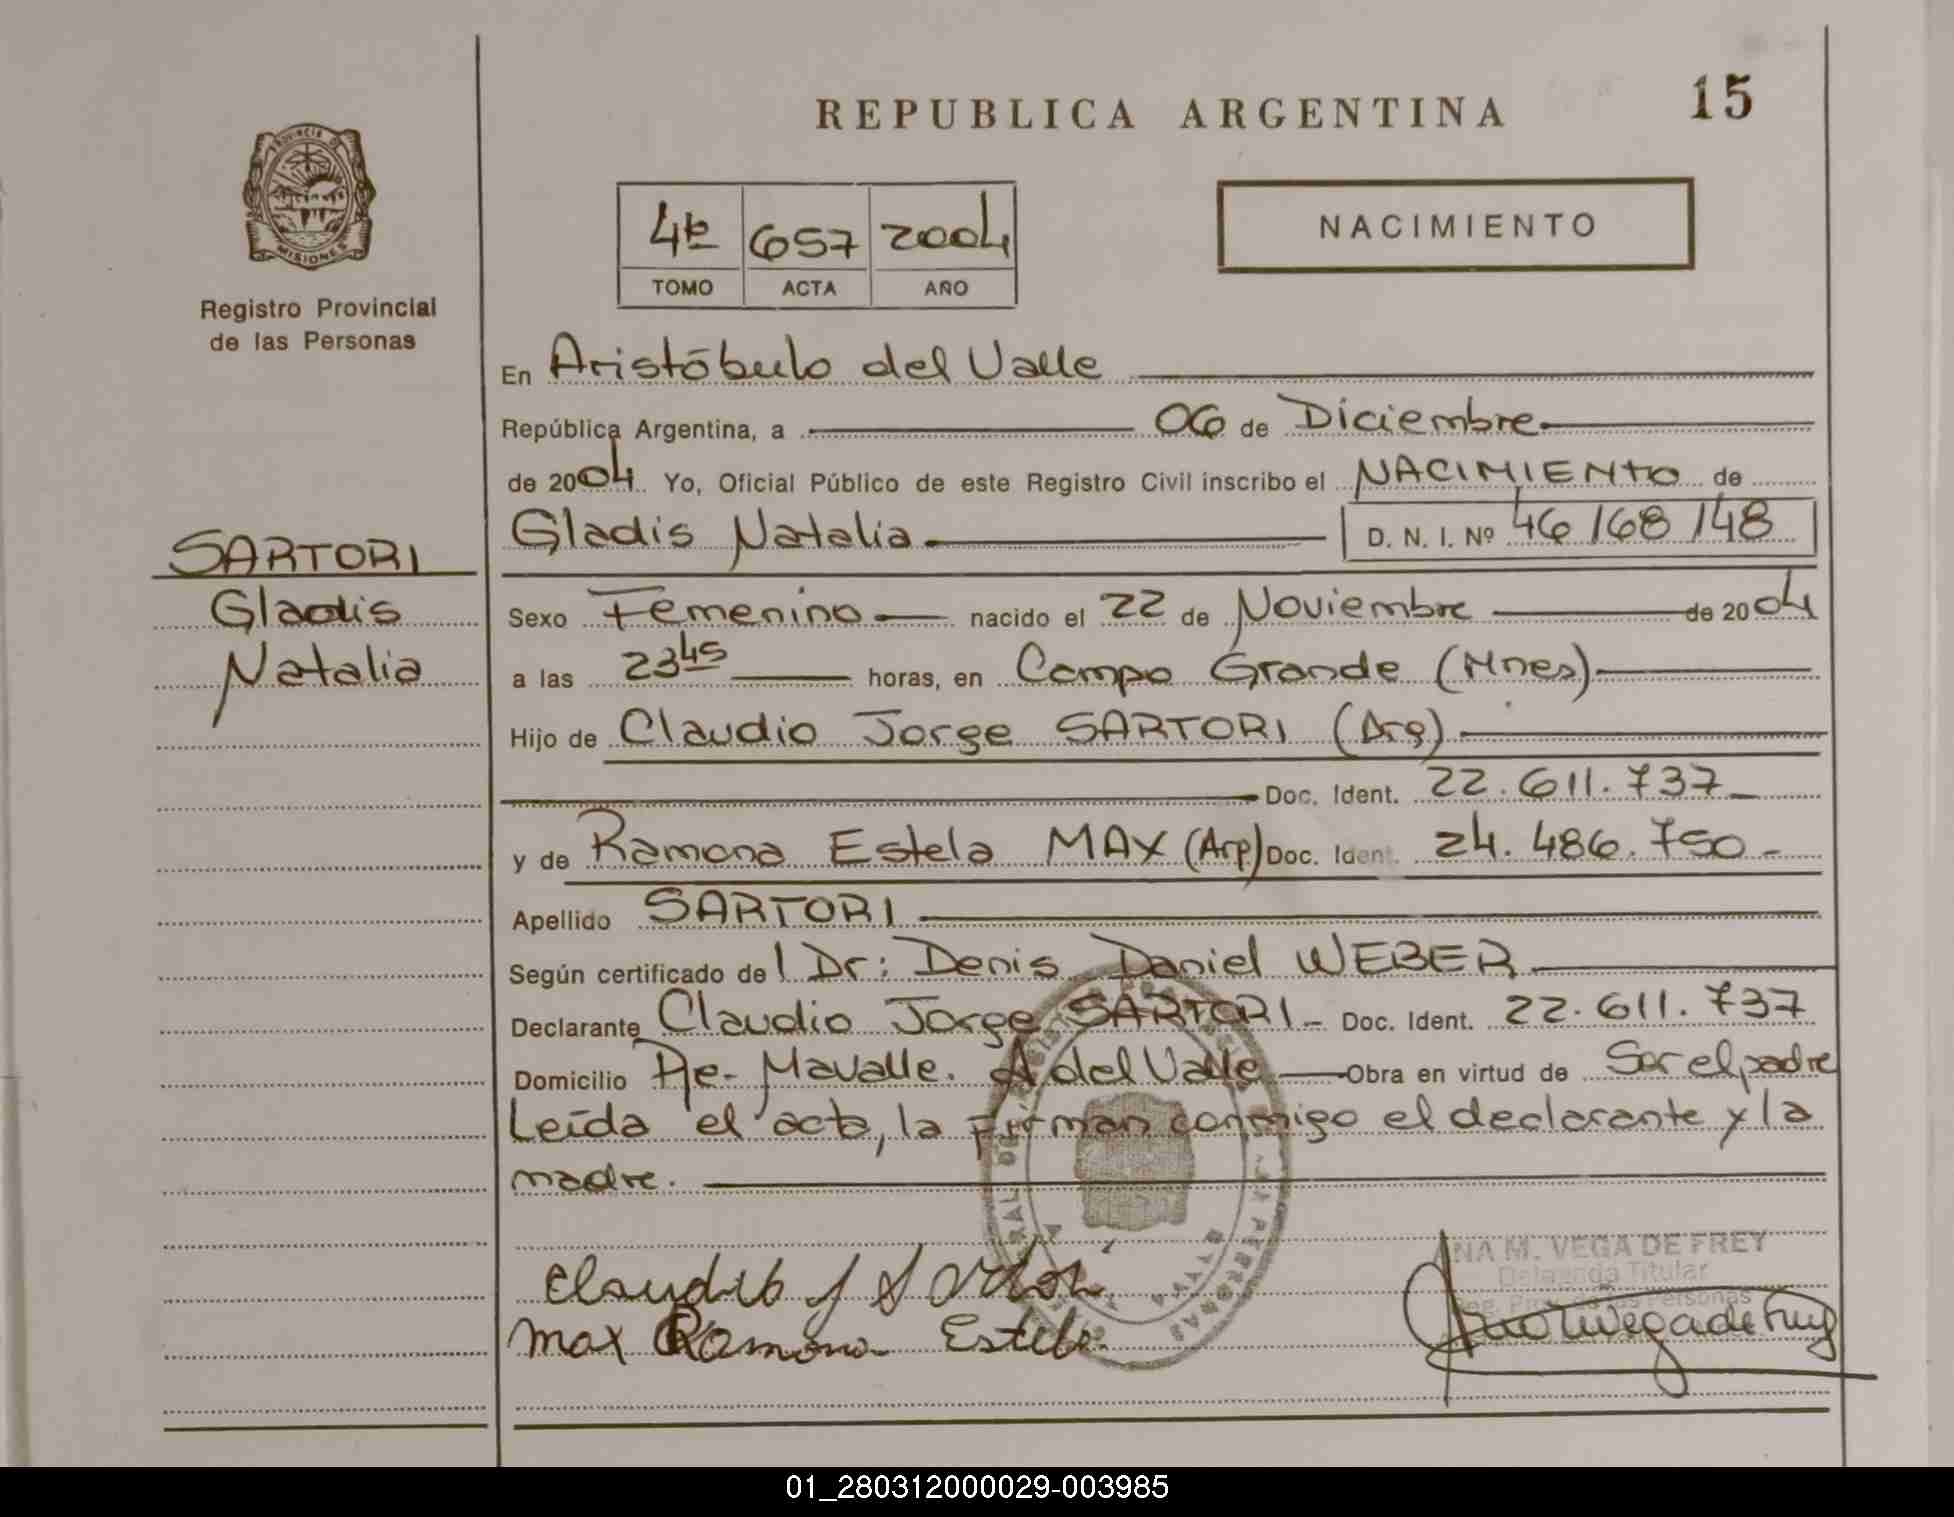 REPUBLICA ARGENTINA
15
PROVINCIA DE
MISIONES
Registro Provincial
de las Personas
4to 657 2004
TOMO ACTA AÑO
NACIMIENTO
En Aristóbulo del Valle
República Argentina, a 06 de Diciembre
de 2004. Yo, Oficial Público de este Registro Civil inscribo el NACIMIENTO de
Gladis Natalia D. N. I. Nº 46/168/148
SARTORI
Gladis
Natalia
Sexo Femenino nacido el 22 de Noviembre de 2004
a las 23 45 horas, en Campo Grande (Mnes)
Hijo de Claudio Jorge SARTORI (Arg)
Doc. Ident. 22.611.737
y de Ramona Estela MAX (Arg) Doc. Ident. 24.486.750
Apellido SARTORI
Según certificado del Dr: Denis Daniel WEBER
Declarante Claudio Jorge SARTORI Doc. Ident. 22.611.737
Domicilio Pje. Mavalle. A del Valle Obra en virtud de Ser el padre
Leída el acta, la firman conmigo el declarante y la
madre.
ANA M. VEGA DE FREY
Delegada Titular
Reg. Prov. de las Personas
Claudio J Sartori
Max Ramona Estela
01_280312000029-003985